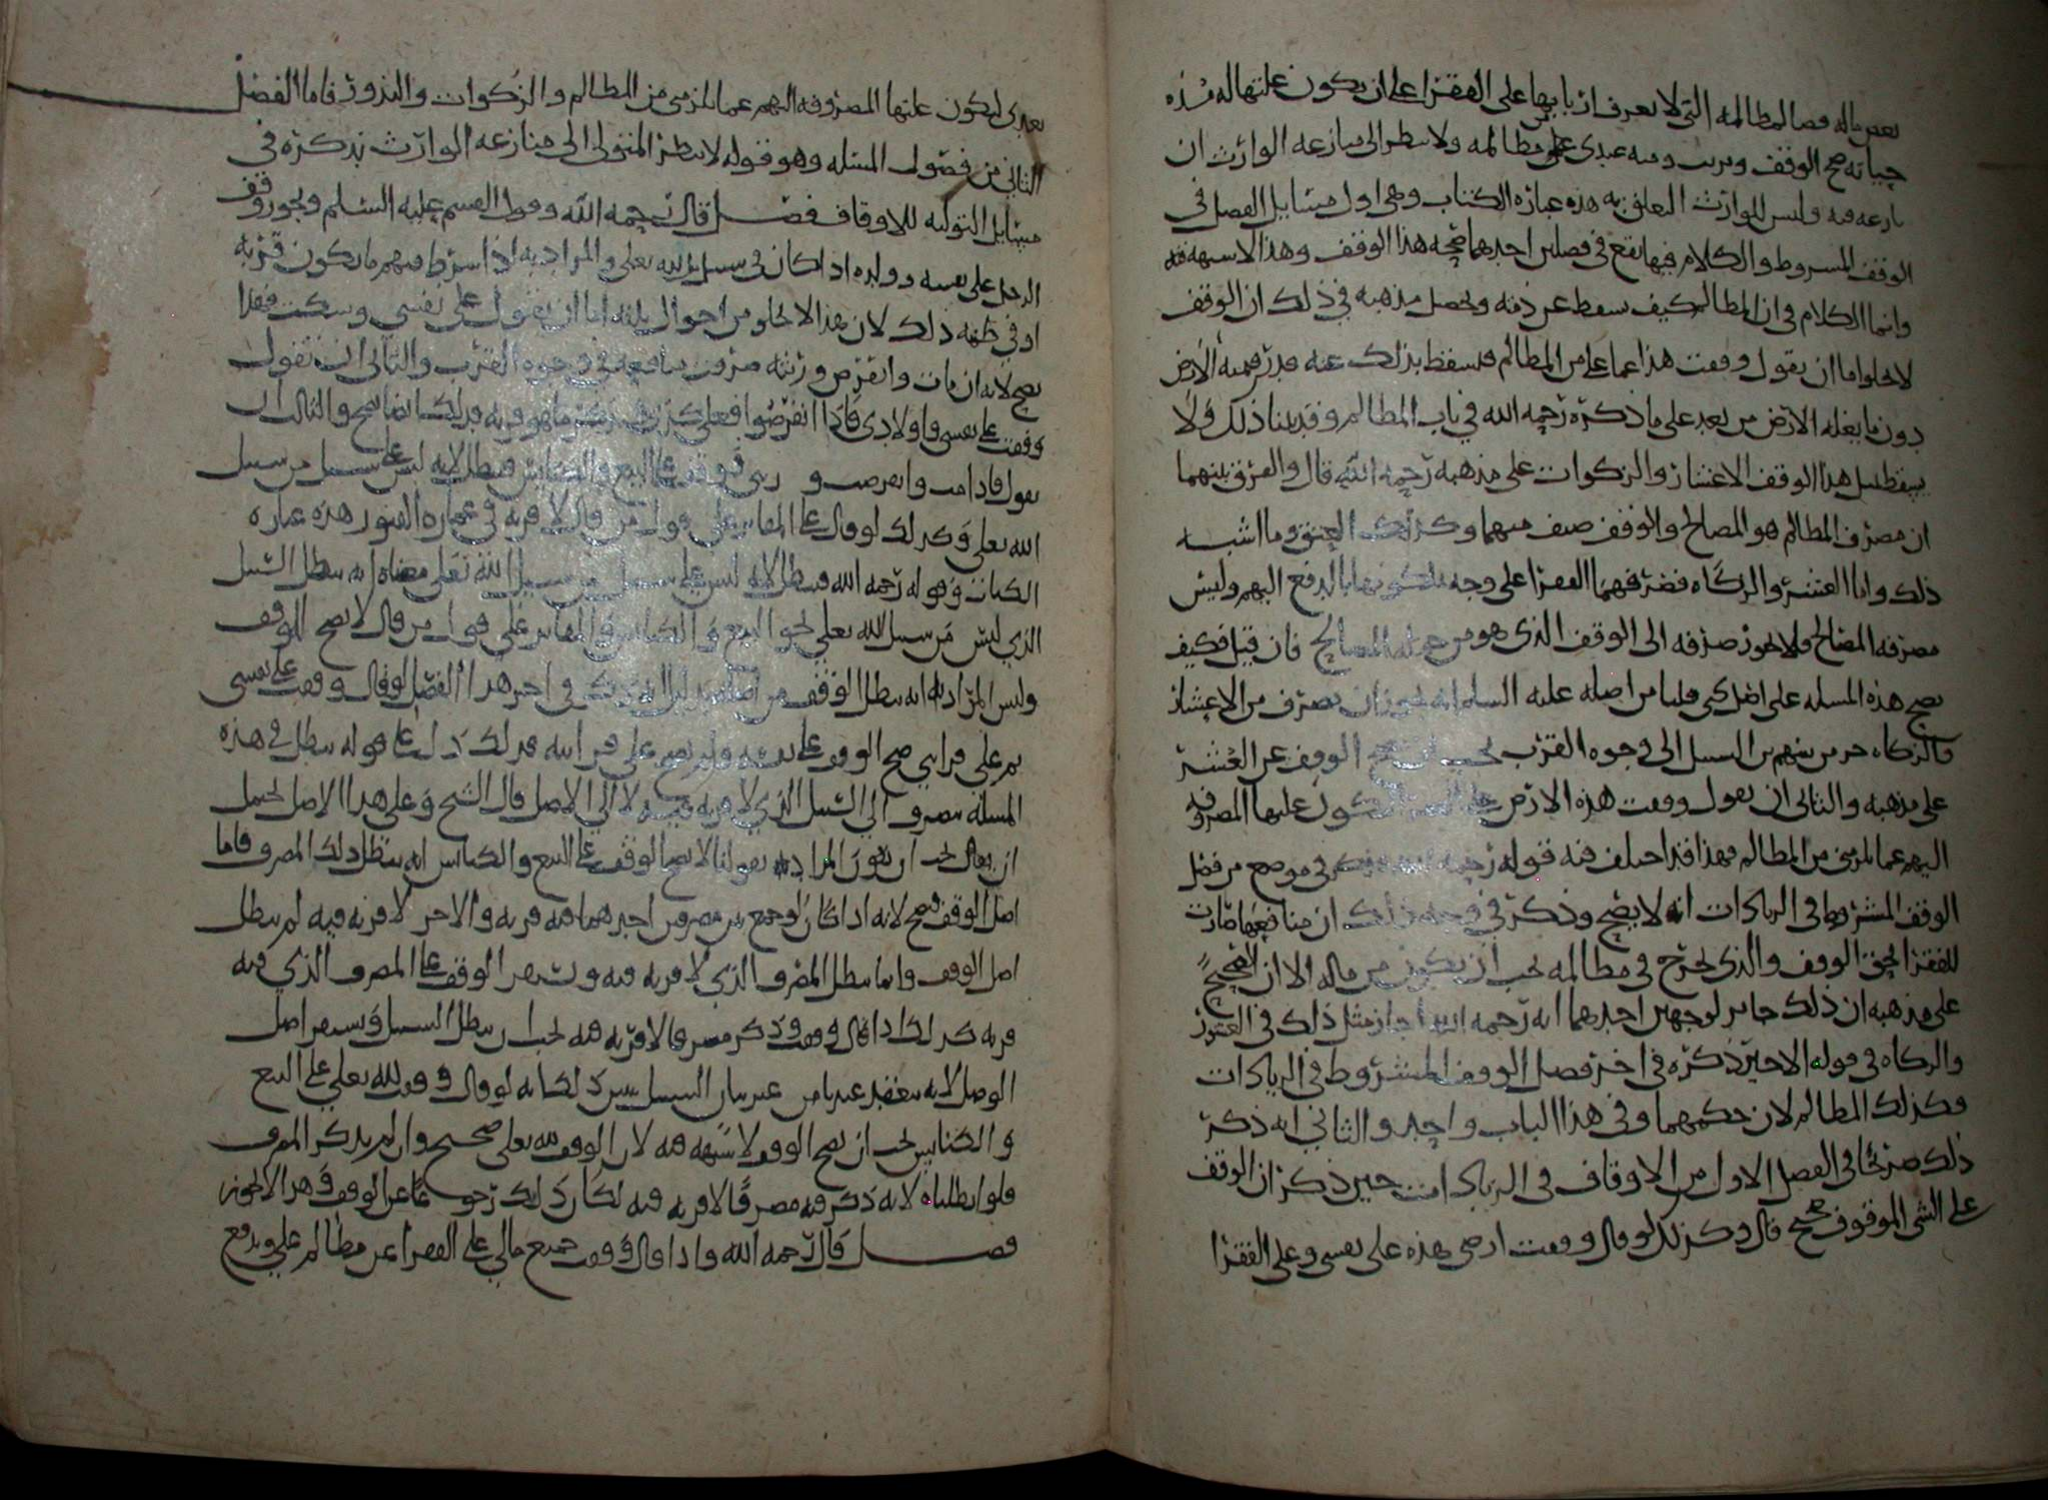 بعض ماله قضا لمظالمه التي لا يعرف اربابها على الفقرا على ان يكون غلتها له مده
حياته صح الوقف وبريت ذمته عندي من مظالمه ولا ينظر الى منازعه الوارث ان
نازعه فيه وليس للوارث التعلق به هذه عبارة الكتاب وهي اول مسايل الفصل في
الوقف المشروط والكلام فيها يقع في فصلين احدهما صحه هذا الوقف وهذا لا شبهه فيه
وانما الكلام في ان المظالم كيف سقط عن ذمته وتحصل مذهبه في ذلك ان الوقف
لا يخلو اما ان يقول وقفت هذا عما علي من المظالم فيسقط بذلك عنه قدر قيمه الارض
دون ما يغله الارض من بعد على ما ذكره رحمه الله في باب المظالم وقد بينا ذلك ولا
يسقط بمثل هذا الوقف الاعشار والزكوات على مذهبه رحمه الله قال والفرق بينهما
ان مصرف المظالم هو المصالح والوقف صنف منهما وكذلك العتق وما اشبه
ذلك واما العشر والزكاه فمصرفهما الفقرا على وجه يملكونها بالدفع اليهم وليس
مصرفه المصالح فلا يجوز صرفه الى الوقف الذي هو من جمله المصالح فان قيل فكيف
يصح هذه المسله على اصلكم قلنا من اصله عليه السلم انه يجوز ان يصرف من الاعشار
والزكاه جز من سهم بن السبيل الى وجوه القرب الوقف عن العشر
على مذهبه والثاني ان يقول وقفت هذه الارض يكون غلتها المصروفه
اليهم عما لزمني من المظالم فهذا قد اختلف فيه قوله رحمه الله فذكر في موضع من فصل
الوقف المشروط في الزيادات انه لا يصح وذكر في وجه ذلك ان منافعها صارت
للفقرا لحق الوقف والذي يخرج في مظالمه يجب ان يكون من ماله الا ان الصحيح
على مذهبه ان ذلك جايز لوجهين احدهما انه رحمه الله اجاز مثل ذلك في العشور
والزكاه في قوله الاخير ذكره في اخر فصل الوقف المشروط في الزيادات
فكذلك المظالم لان حكمهما في هذا الباب واحد والثاني انه ذكر
ذلك صريحا في الفصل الاول من الاوقاف في الزيادات حين ذكر ان الوقف
على الشي الموقوف صحيح قال وكذلك لو قال وقفت ارضي هذه على نفسي وعلى الفقرا
بعدي ليكون غلتها المصروفه اليهم عما لزمني من المظالم والزكوات والنذور فاما الفصل
الثاني من فصول المسله وهو قوله لا ينظر المتولي الى منازعه الوارث نذكره في
مسايل التوليه للاوقاف فصل قال رحمه الله وقول القسم عليه السلم ويجوز وقف
الرجل على نفسه وولده اذا كان في سبيل الله تعلى والمراد به اذا شرط فيهم ما يكون قربه
او في ظنه ذلك لان هذا لا يخلو من احوال ثلثه اما ان يقول على نفسي وسكت فهذا
يصح لانه ان مات وانقرض ورثته صرفت منافعه في وجوه القرب والثاني ان يقول
وقفت على نفسي واولادي فاذا انقرضوا فعلى كذا ما هو قربه فذلك ايضا يصح والثالث ان
يقول فاذا مت وانقرضت فوقف على البيع والكنايس فيبطل لانه ليس على سبيل من سبيل
الله تعلى وكذلك لو قال على المقابر على قول من قال لا قربه في عماره القبور هذه عباره
الكتاب وقوله رحمه الله فيبطل لانه ليس على سبيل من سبيل الله تعلى معناه انه يبطل السبيل
الذي ليس من سبيل الله تعلى نحو البيع والكنايس والمقابر على قول من قال لا يصح للوقف
وليس المراد به انه يبطل الوقف من اصله بدليل انه ذكر في اخر هذا الفصل لو قال وقفت على نفسي
ثم على قرابتي صح الوقف على نفسه ولم يصح على قرابته فذلك دل على قوله يبطل في هذه
المسله ينصرف الى السبيل الذي لا قربه فيه لا الى الاصل قال الشيخ وعلى هذا الاصل يحمل
ان يقال يجب ان يكون المراد به بقولنا لا يصح الوقف على البيع والكنايس انه يبطل ذلك المصرف فاما
اصل الوقف فيصح لانه اذا كان لو جمع بين مصرفين احدهما فيه قربه والاخر لا قربه فيه لم يبطل
اصل الوقف وانما يبطل المصرف الذي لا قربه فيه ويستقر الوقف على المصرف الذي فيه
قربه كذلك اذا قال وقفت وذكر مصرفا لا قربه فيه يجب ان يبطل السبيل ويستقر اصل
الوصل لانه ينعقد عندنا من غير بيان السبيل يبين ذلك انه لو قال وقفت لله تعلى على البيع
والكنايس يجب ان يصح الوقف لا شبهه فيه لان الوقف لله تعلى صحيح وان لم يذكر المصرف
فلو ابطلناه لانه ذكر فيه مصرفا لا قربه فيه لكان ذلك رجوعا عن الوقف وهذا لا يجوز
فصل قال رحمه الله واذا قال وقفت جميع مالي على الفقرا عن مظالم علي ويدفع